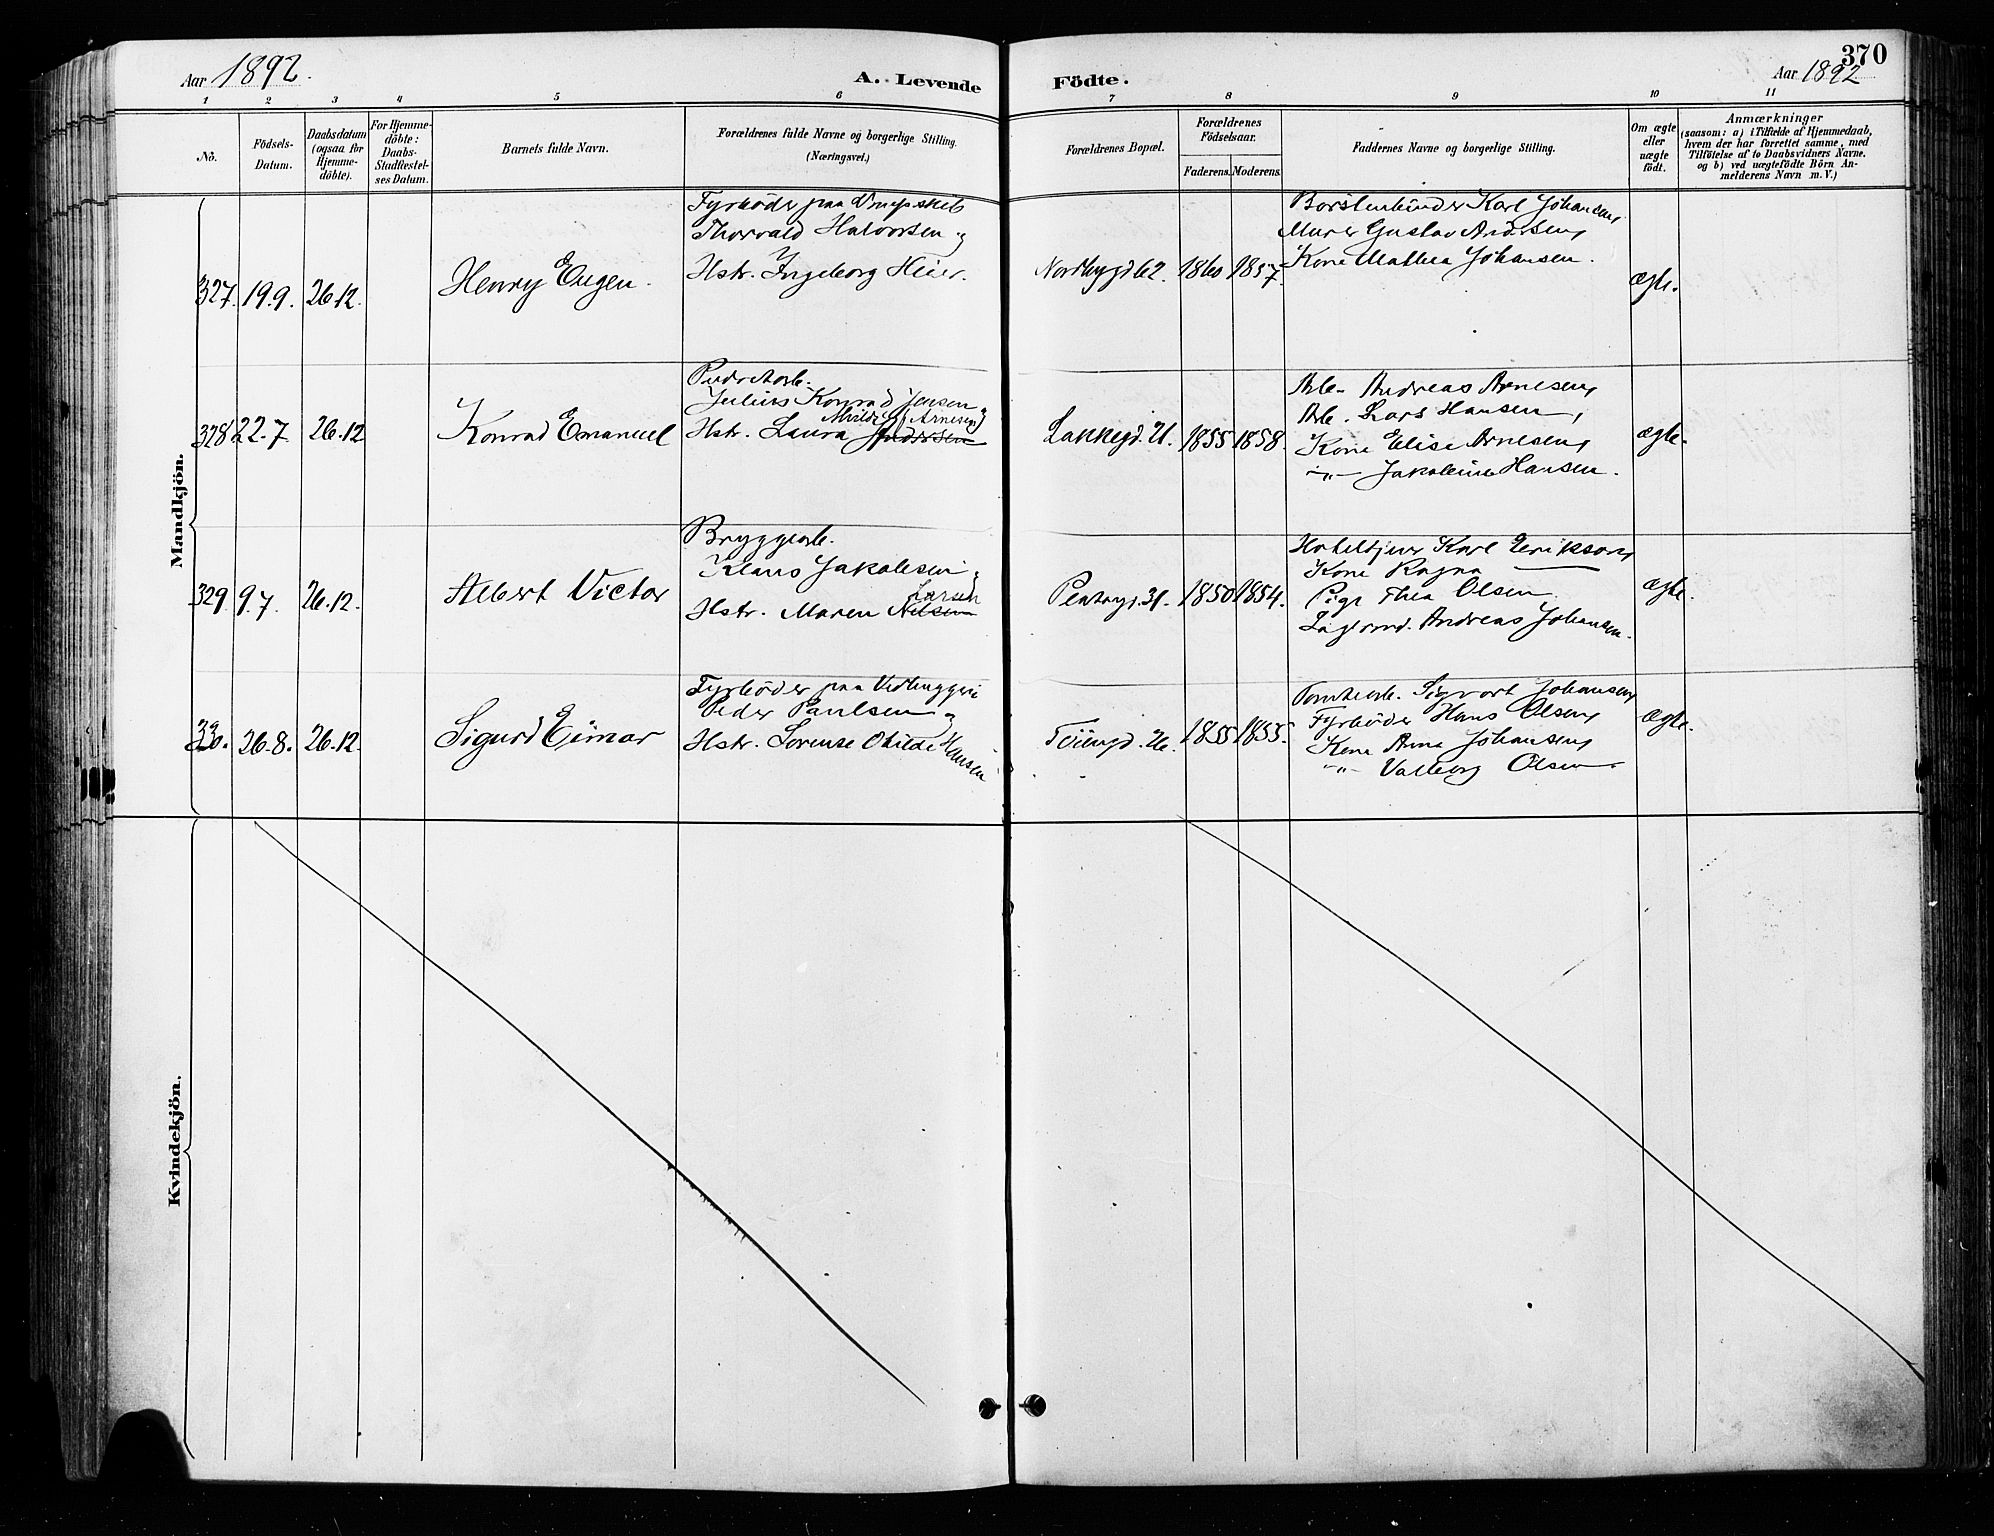 370
Aar 1892.
A. Levende Födte.
Aar 1892
1 2 3 4 5 6 7 8 9 10 11
No.
Födsels-Datum.
Daabsdatum (ogsaa for Hjemme-döbte).
For Hjemme-döbte: Daabs-Stadfæstel-ses Datum.
Barnets fulde Navn.
Forældrenes fulde Navne og borgerlige Stilling. (Næringsvei.)
Forældrenes Bopæl.
Forældrenes Födselsaar.
Faderens. Moderens.
Faddernes Navne og borgerlige Stilling.
Om ægte eller uægte födt.
Anmærkninger
(saasom: a) i Tilfælde af Hjemmedaab, hvem der har forrettet samme, med Tilföielse af to Daabsvidners Navne, og b) ved uægtefödte Börn An-melderens Navn m. V.)
Mandkjön.
327. 19.9. 26.12. Henry Eugen.
Fyrbøder paa
Thorvald Halvorsen og
Hstr. Ingeborg Heier.
Nordbygd 62. 1860 1857.
Børstenbinder Karl Johansen,
Murer Gustav Andersen,
Kone Mathea Johansen.
ægte.
328. 22.7. 26.12 Konrad Emanuel
Julius Konrad Jensen
Hstr. Laura (Arnesen) Andersen
Lakkegd. 21. 1855 1858.
Arb. Andreas Arnesen,
Arb. Lars Hansen,
Kone Elise Arnesen,
—„— Jakobine Hansen.
ægte.
329. 9.7. 26.12. Albert Victor
Bryggearb.
Klaus Jakobsen
Hstr. Maren Larsen Nilsen
31. 1850 1854.
Karl Erikson,
Kone Ragna ——
Pige Thea Olsen.
Andreas Johansen.
ægte.
330. 26.8. 26.12. Sigurd Einar
Fyrbøder paa
Peder Paulsen og
Hstr. Lorense Otilde Hansen
Töiengd. 26. 1855 1855.
Tomtearb. Sigvart Johansen,
Fyrbøder Hans Olsen,
Kone Anna Johansen,
—„— Valborg Olsen.
ægte.
Kvindekjön.